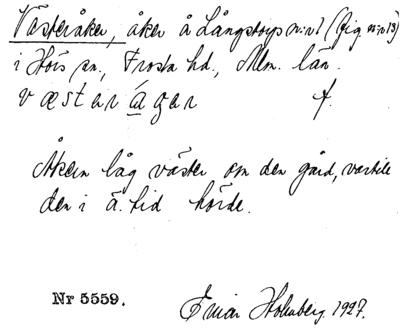 Västeråker, åker å Långstorps n:r 1 (Fig. n:r 13)
i Hörs sn., Frosta hd., Mlm. län.
væstəráꞬər f.
Åkern låg väster om den gård, vartill
den i ä. tid hörde.
Nr 5559. Einar Holmberg. 1927.